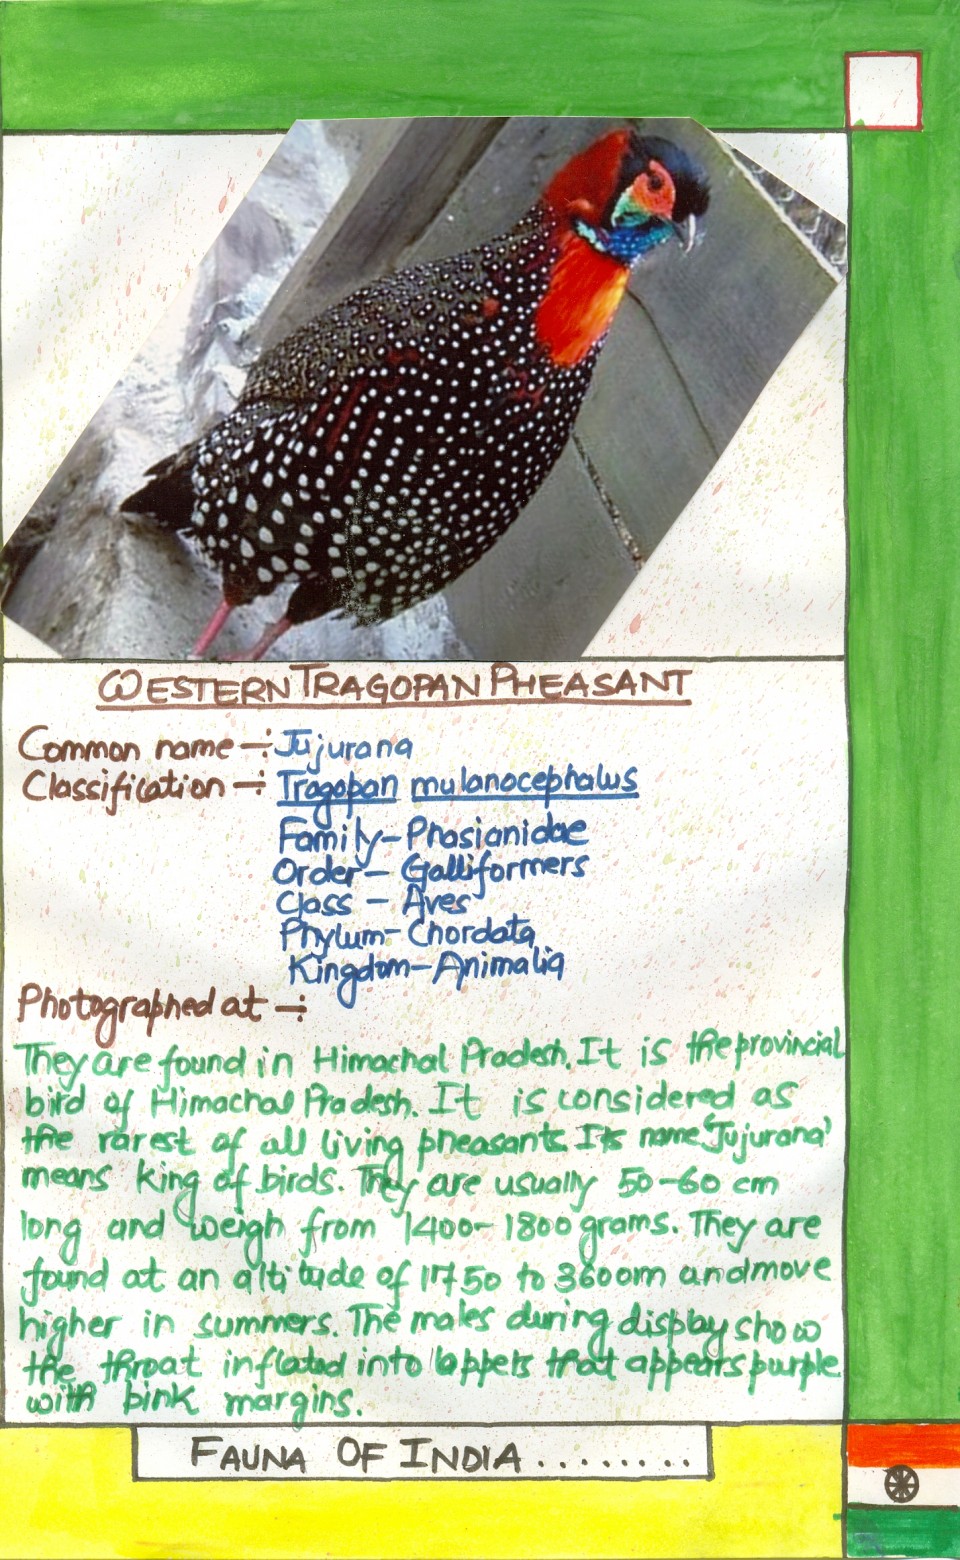 WESTERN TRAGOPAN PHEASANT
Common name -: Jujurana
Classification -: Tragopan mulanocephalus
Family - Phasianidae
Order - Galliformers
Class - Aves
Phylum - Chordata
Kingdom - Animalia
Photographed at -:
They are found in Himachal Pradesh. It is the provincial
bird of Himachal Pradesh. It is considered as
the rarest of all living pheasants. Its name 'Jujurana'
means king of birds. They are usually 50-60 cm
long and weigh from 1400-1800 grams. They are
found at an altitude of 1750 to 3600m and move
higher in summers. The males during display show
the throat inflated into lappets that appears purple
with pink margins.
FAUNA OF INDIA........